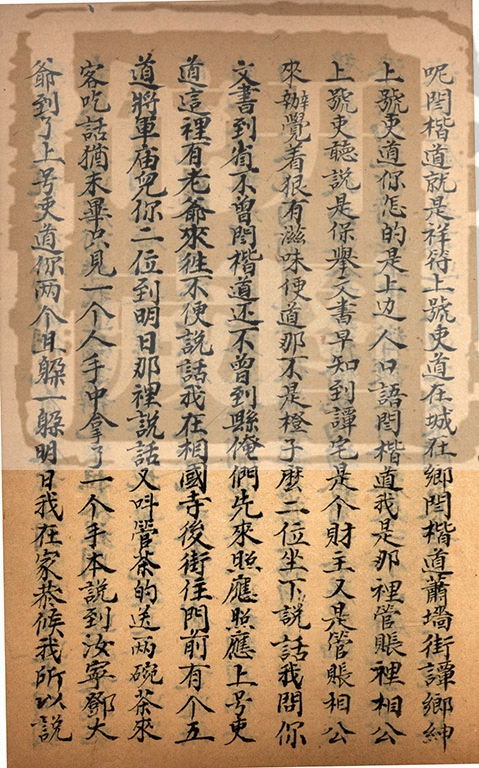 呢閆楷道就是祥符上號吏道在城在鄉閆楷道蕭墻街譚鄉紳
上號吏道你怎的是上边人口語閆楷道我是那裡管賬裡相公
上號吏聽說是保舉文書早知到譚宅是个財主又是管賬相公
來辦覺着狠有滋味便道那不是橙子麽二位坐下說話我問你
文書到省不曾閆楷道还不曾到縣俺們先來照應照應上号吏
道這裡有老爺來徃不便説話我在相國寺後街住門前有个五
道將軍庙兒你二位到明日那裡說話又呌管茶的送两碗茶來
客吃話猶未畢只見一个人手中拿了一个手本說到汝寧鄧大
爺到了上号吏道你两个且躲一躲明日我在家恭候我所以説